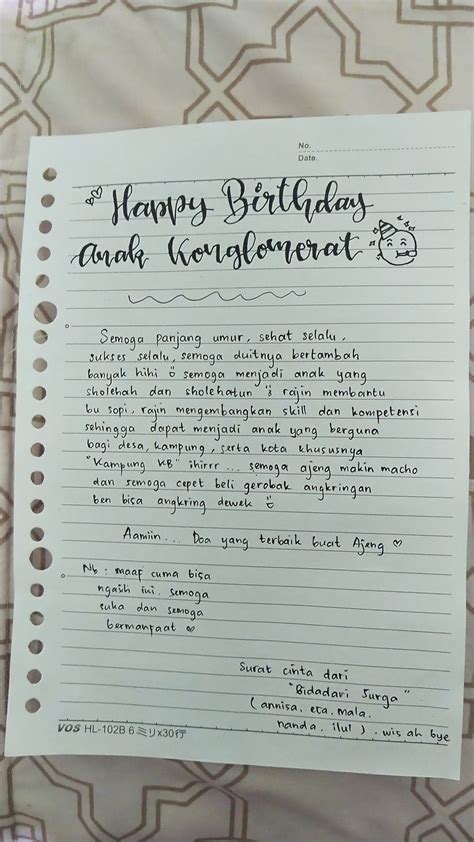 No.
Date.
Happy Birthday
Anak Konglomerat
Semoga panjang umur, sehat selalu,
sukses selalu, semoga duitnya bertambah
banyak hihi semoga menjadi anak yang
sholehah dan sholehatun rajin membantu
bu sopi, rajin mengembangkan skill dan kompetensi
sehingga dapat menjadi anak yang berguna
bagi desa, kampung, serta kota khususnya
"Kampung KB" ihirrr ... semoga ajeng makin macho
dan semoga cepet beli gerobak angkringan
ben bisa angkring dewek
Aamiin... Doa yang terbaik buat Ajeng ♡
Nb : maap cuma bisa
ngasih ini. semoga
suka dan semoga
bermanfaat ♡
Surat cinta dari
"Bidadari Surga"
(annisa, eta, mala,
nanda, ilul). wis ah bye
VOS HL-102B 6ミリx30行